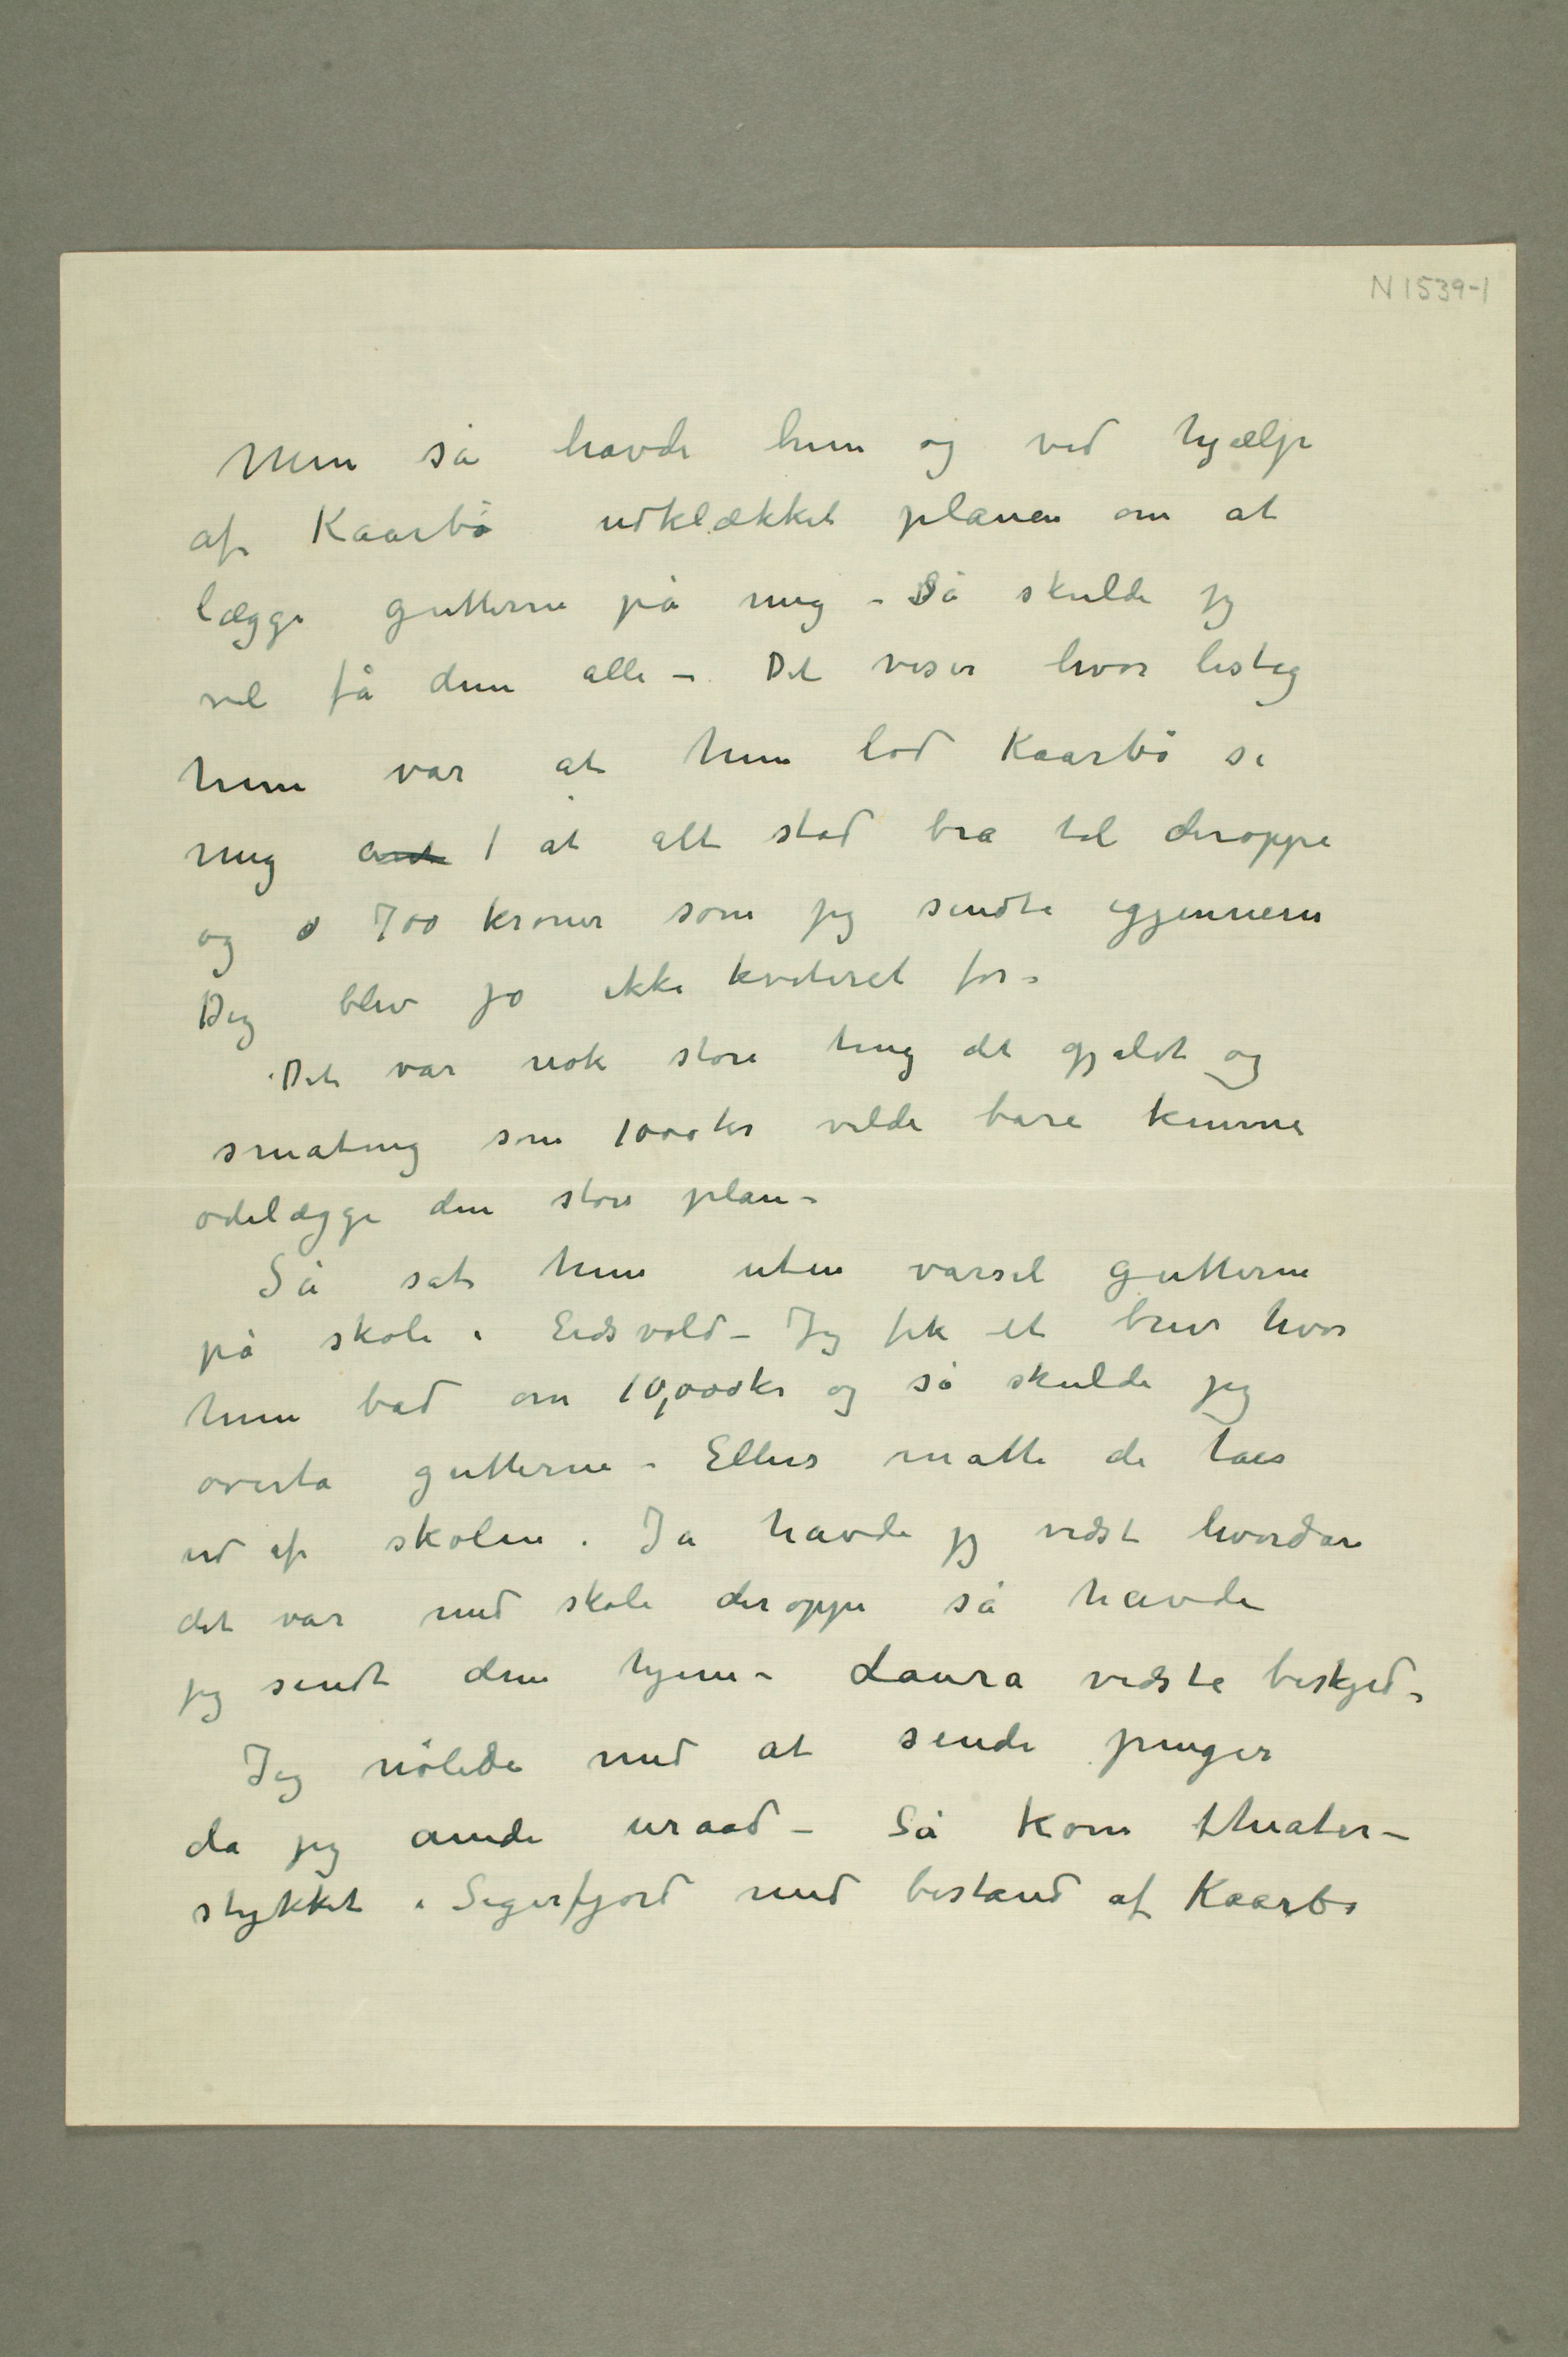 N 1539-1
Men så havde hun og ved hjælp
af Kaarbö udklækket planen om at
lægge gutterne på mig – Så skulde jeg
vel få dem alle – Det viser hvor listig
hun var at hun lod Kaarbö si
mig at alt stod bra til deroppe
og 700 kroner som jeg sendte igjennem
Dig blev jo ikke kvitteret for –
Det var nok store ting det gjaldt og
småting som 1000 kr vilde bare kunne
ödelægge den store plan –
Så sat hun uten varsel gutterne
på skole i Eidsvold – Jeg fik et brev hvor
hun bad om 10,000 kr og så skulde jeg
overta gutterne – Ellers måtte de taes
ud af skolen. Ja havde jeg vidst hvordan
det var med skole deroppe så havde
jeg sendt dem hjem – Laura vidste beskjed –
Jeg nölede med at sende penger
da jeg anede uraad – Så kom theater-
stykket i Sigerfjord med bistand af Kaarbö